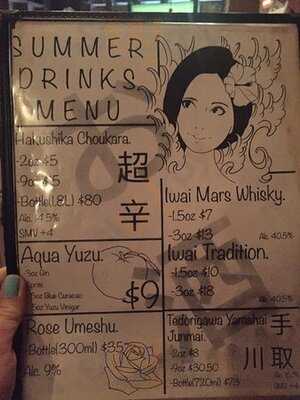 SUMMER
DRINKS
MENU
Hakushika Choukara.
-2oz $5
-9oz
-Bottle(1.8L) $80
Alc. 14.5%
SMV +4
超
辛
Iwai Mars Whisky.
-1.5oz $7
-3oz $13
Alc. 40.5%
Aqua Yuzu.
Gin
Blue Curacao
Yuzu Vinegar
$9
Iwai Tradition.
-1.5oz $10
-3oz $18
Alc. 40.5%
Rose Umeshu.
-Bottle(300ml) $35
Alc. 9%
Tedorigawa Yamahai
Junmai.
-2oz $8
-9oz $30.50
-Bottle(720ml) $78
手
取
川